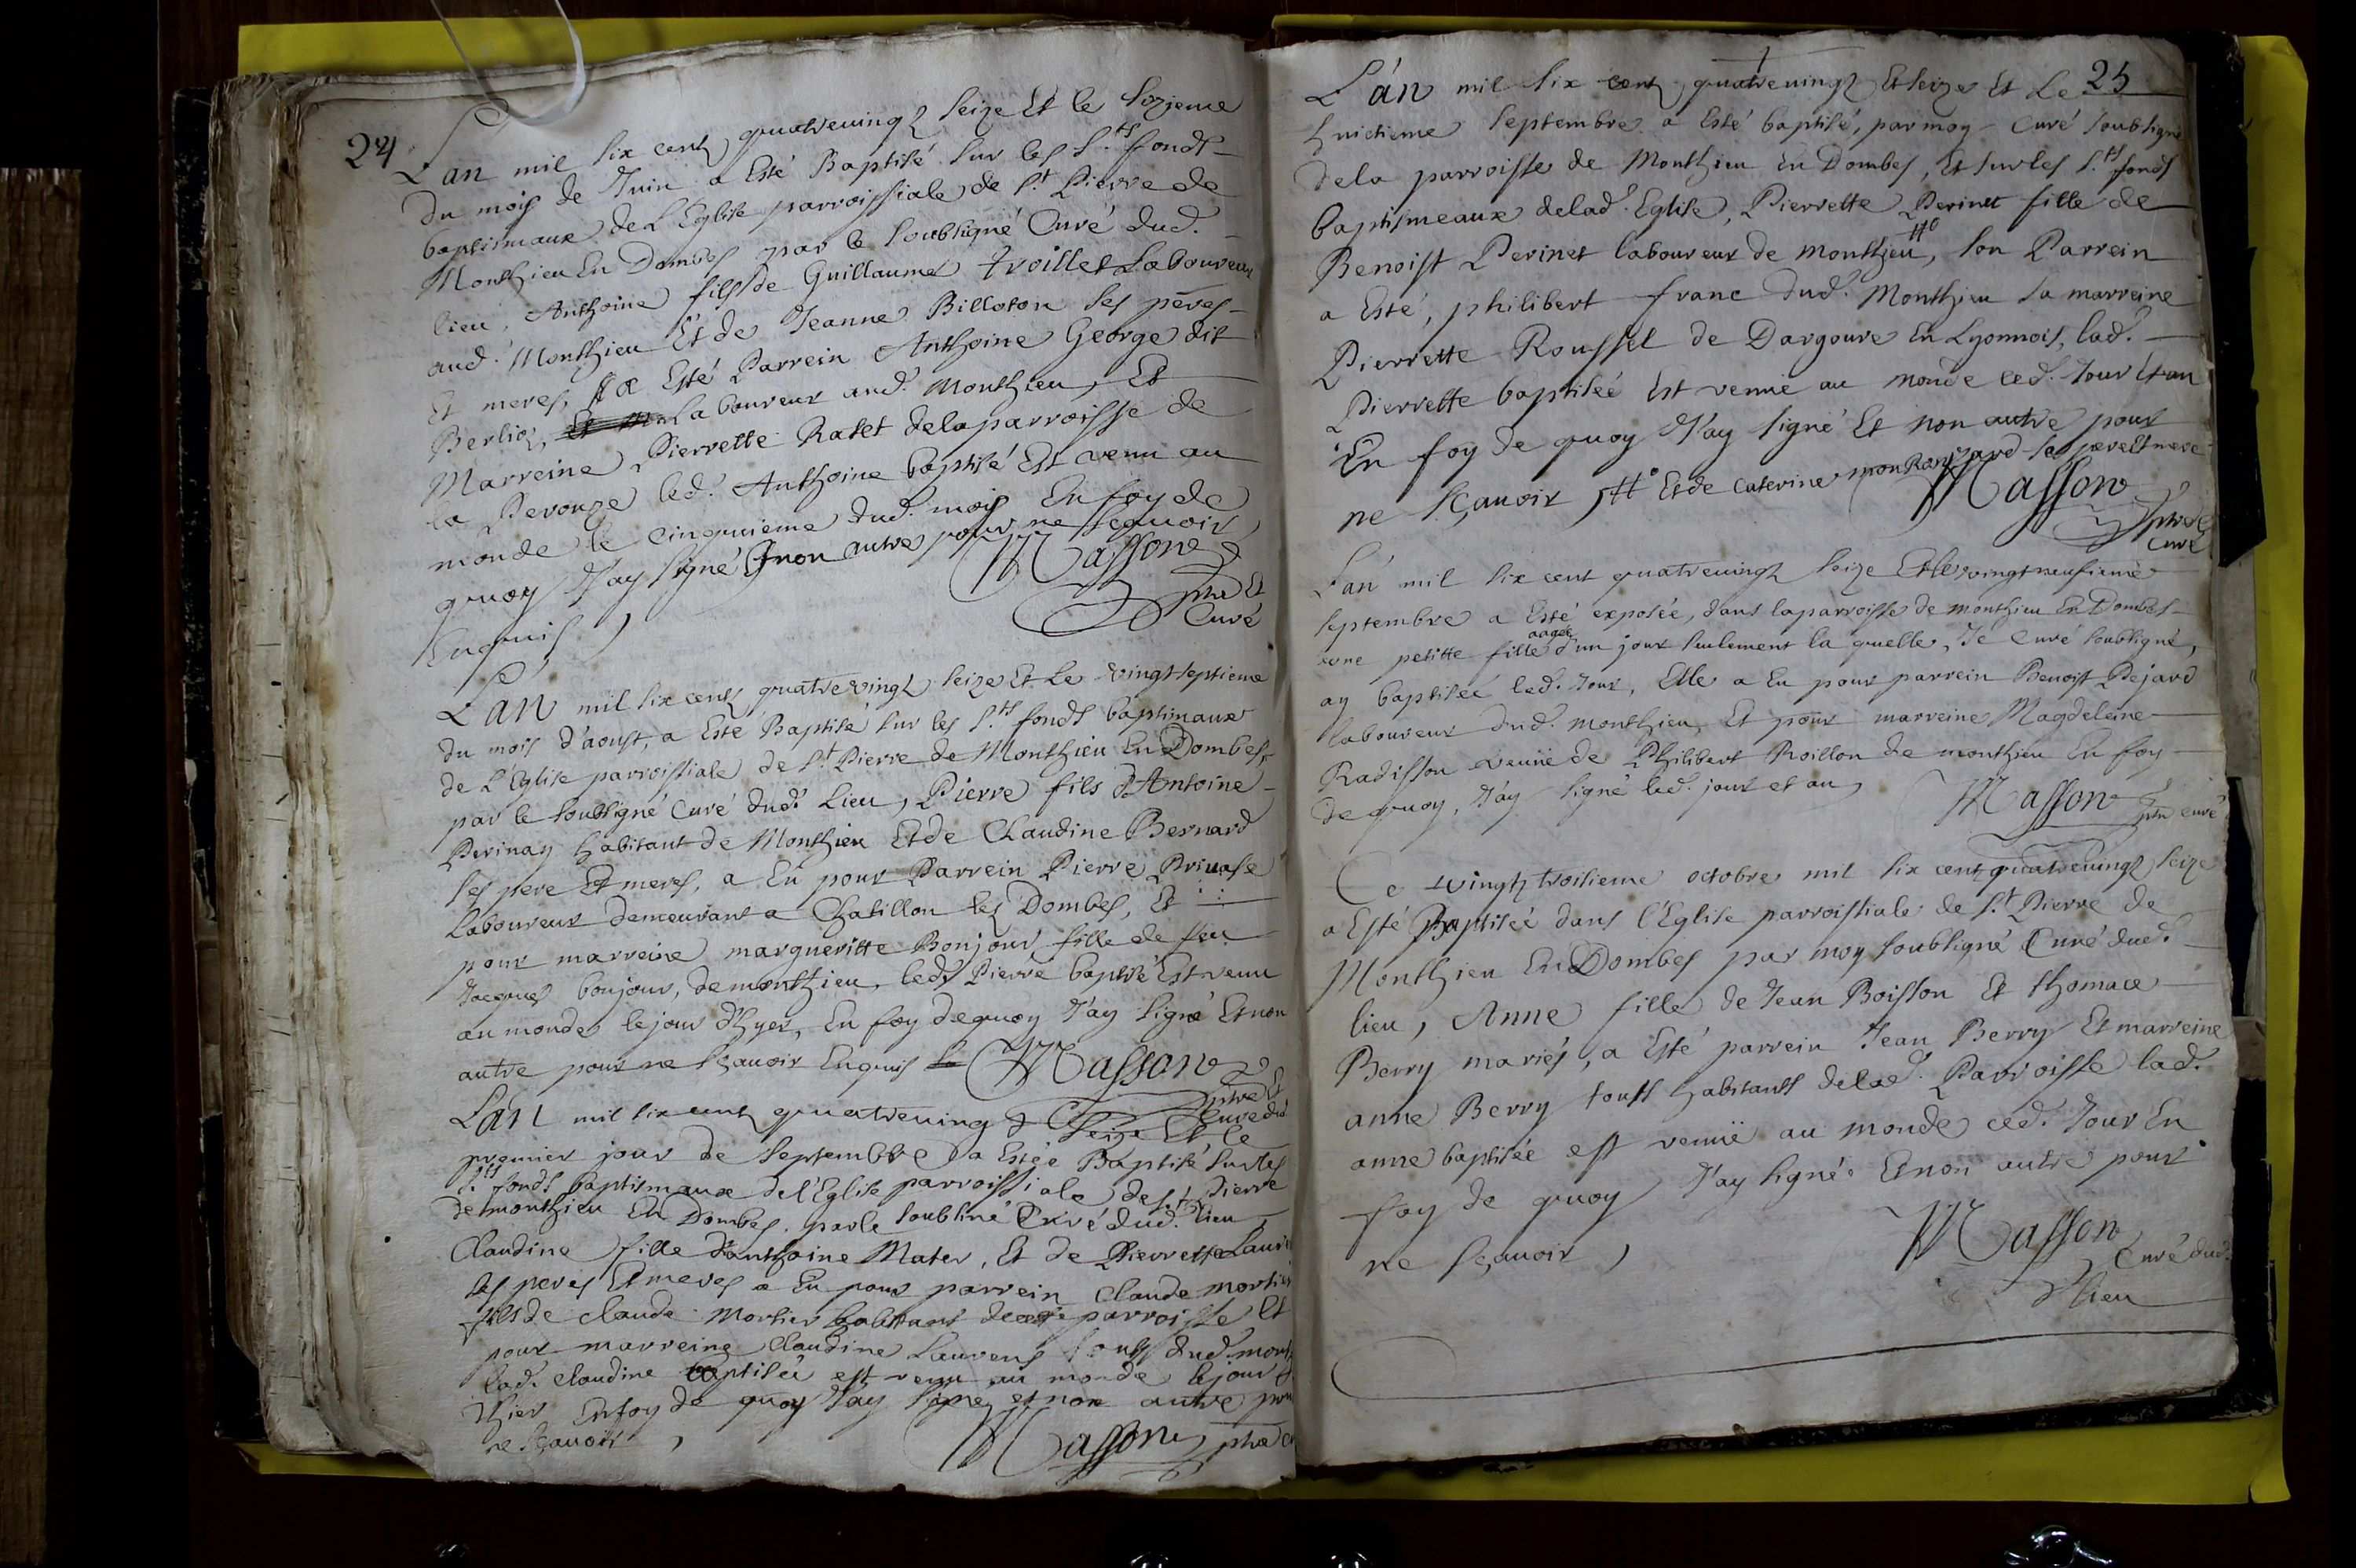 24
L'an mil six cent quatrevingt seize Et le sizieme
du mois de Juin a Esté Baptisé sur les S.ts fonds
baptismaux de L'Eglise parroissiale de S.t Pierre de
Monthieu En Dombes par le soubsigné Curé dud.
lieu, Anthoine fils de Guillaume troillet Laboureur
aud. Monthieu Et de Jeanne Billoton ses peres
Et meres, a Esté Parrein Anthoine George dit
Berlio, Laboureur aud. Monthieu, Et
Marreine Pierrette Ratet de la parroisse de
la Perouze led. Anthoine baptisé Est venu au
monde le cinquieme dud. mois En foy de
quoy J'ay signé Et non autre pour ne sçauoir
Enquis,
Masson
ptre Et
Curé
L'an mil six cent quatrevingt seize Et Le vingt septieme
du mois d'aoust, a Esté Baptisé sur les S.ts fonds baptimaux
de L'Eglise parroissiale de S.t Pierre de Monthieu En Dombes,
par le soubsigné Curé dud. Lieu, Pierre fils d'Antoine
Perinay habitant de Monthieu Et de Claudine Bernard
ses pere Et meres, a Eu pour Parrein Pierre Priuase
Laboureur demeurant a Chatillon les Dombes, Et
pour marreine margueritte Bonjour fille de feu
Jacques bonjour, de monthieu, led. Pierre baptisé Est venu
au monde le jour d'hyer, En foy de quoy J'ay signé Et non
autre pour ne sçauoir Enquis Masson
ptre Et
Curé dud.
L'an mil six cent quatreuingt Seize Et le
premier jour de Septembre a Estée Baptisé sur les
S.ts fonds baptismaux de l'Eglise parroissiale de S.t Pierre
de monthieu En Dombes. par le soubsiné Curé dud. lieu
Claudine fille d'anthoine Mater, Et de Pierrette Laure
ses peres Et meres a Eu pour parrein Claude mortier
fils de claude Mortier habitant de cette parroisse Et
pour marreine Claudine Laurens touss dud. mont
lad. Claudine baptisée est venu au monde le jour d
d'hier En foy de quoy J'ay signé et non autre pour
ne sçauoir,
Masson ptre c
25
L'an mil six cent quatreuingt Et seize Et Le
huictieme septembre a Esté baptisé, par moy Curé soubsigné
de la parroisse de Monthieu En Dombes, Et sur les S.ts fonds
baptismeaux de lad. Eglise, Pierrette Perinet fille de
Benoist Perinet laboureur de monthieu #, son Parrein
a Esté, philibert franc dud. Monthieu sa marreine
Pierrette Roussel de Dargoure En Lyonnois, lad.
Pierrette baptiséé Est venuë au monde led. Jour Et an
En foy de quoy J'ay signé Et non autre pour
ne sçauoir, # Et de Caterine monRouzard ses pere Et mere
Masson
ptre Et
Curé
L'an mil six cent quatreuingt seize Et le vingt neufieme
septembre a Esté exposée, dans la parroisse de monthieu En Dombes
une petitte fille aagée d'un jour seulement la quelle, Je Curé soubsigné,
ay baptiséé led. Jour, Elle a Eu pour parrein Benoist Dejard
laboureur dud. monthieu, Et pour marreine Magdeleine
Radisson veuue de Philibert Roillon de monthieu En foy
de quoy, J'ay signé led. jour et an,
Masson ptre curé
Ce vingt troisieme octobre mil six cent quatreuingt seize
a Esté Baptiséé dans l'Eglise parroissiale de S.t Pierre de
Monthieu En Dombes par moy soubsigné Curé dud.
lieu, Anne fille de Jean Boisson Et thomace
Berry mariés, a Esté parrein Jean Berry Et marreine
anne Berry touss habitants de lad. Parroisse lad.
anne baptisée est venuë au monde ced. Jour En
foy de quoy J'ay signé Et non autre pour
ne sçauoir,
Masson
Curé dud.
Lieu